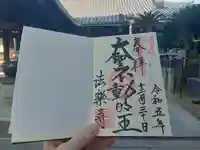 令和五年
十二月三十日
奉拝
大聖不動明王
法樂寺